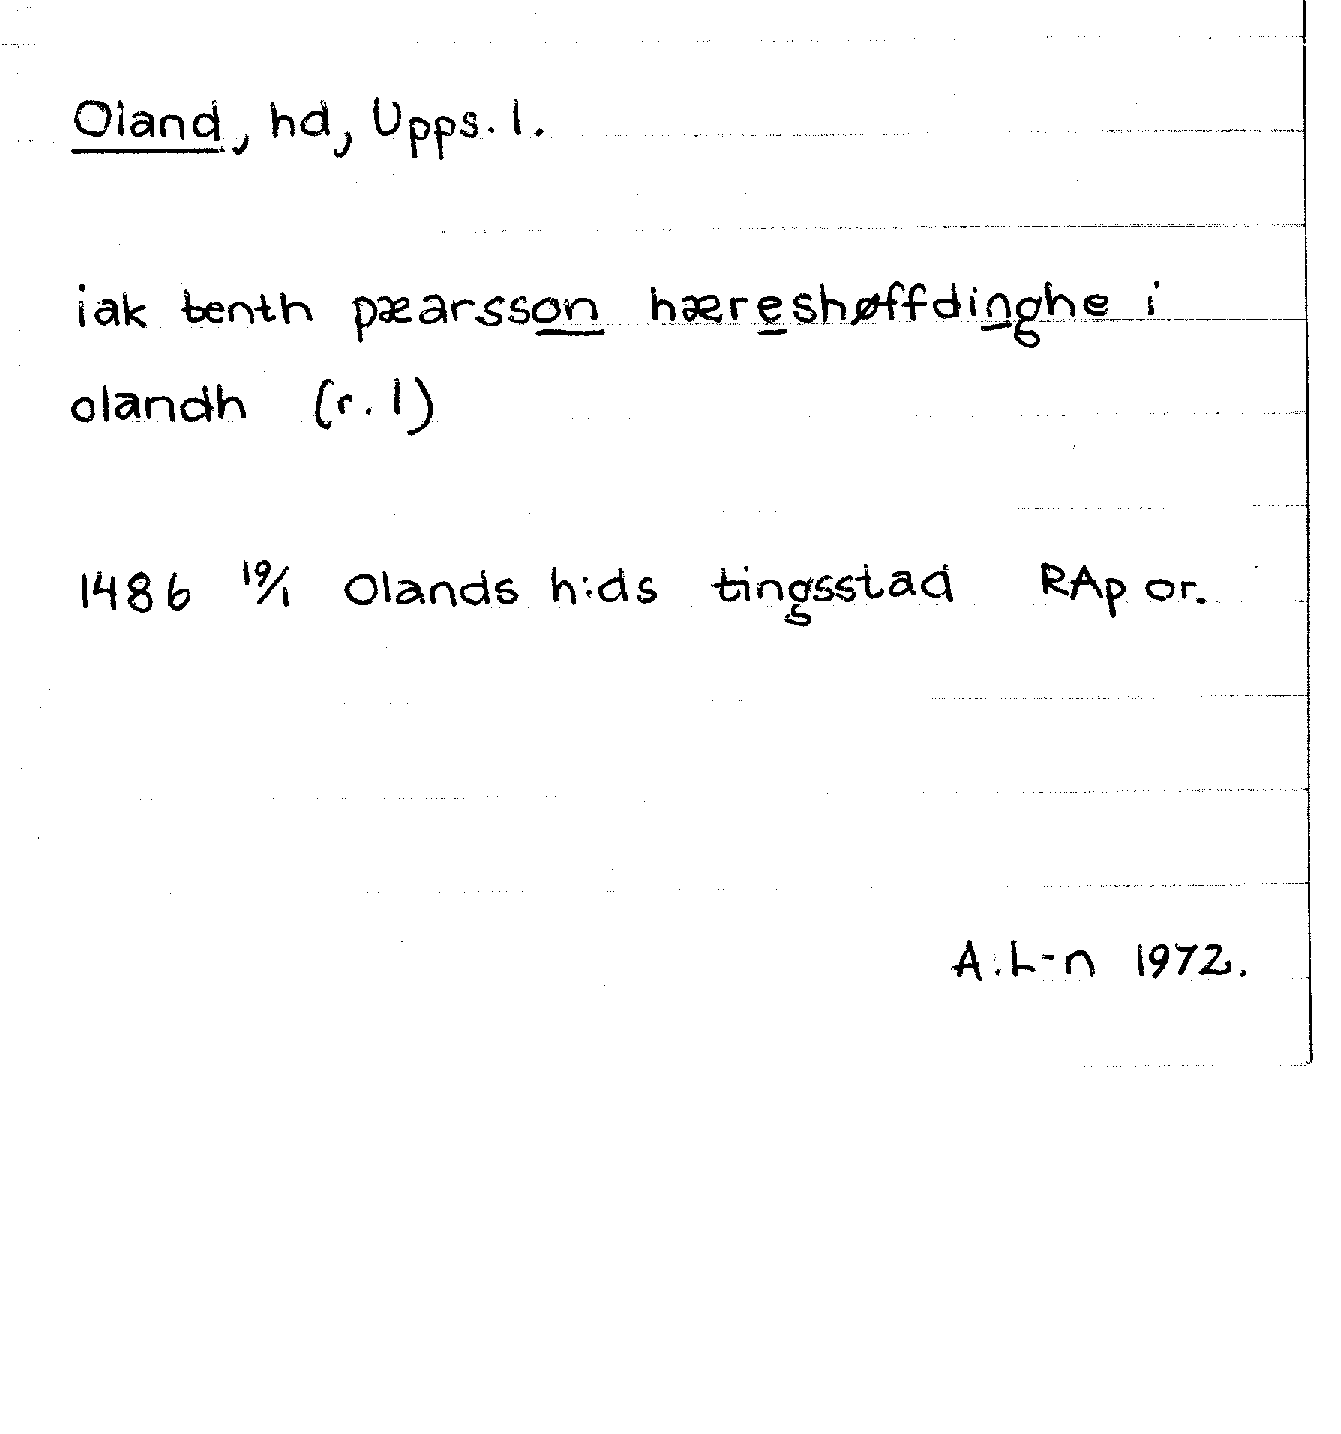 Oland, hd, Upps. l.
iak tenth pæarsson hæreshøffdinghe i
olandh (r. 1)
1486 19/1 Olands h:ds tingsstad RAp or.
A. L-n 1972.